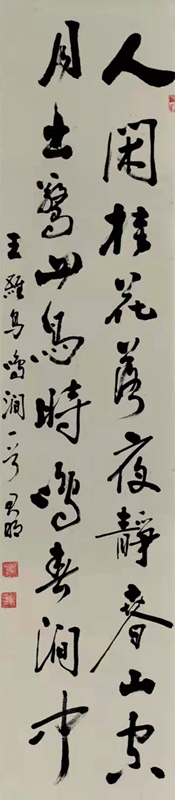 人闲桂花落夜静春山空
月出惊山鸟时鸣春涧中
王维鸟鸣涧一首